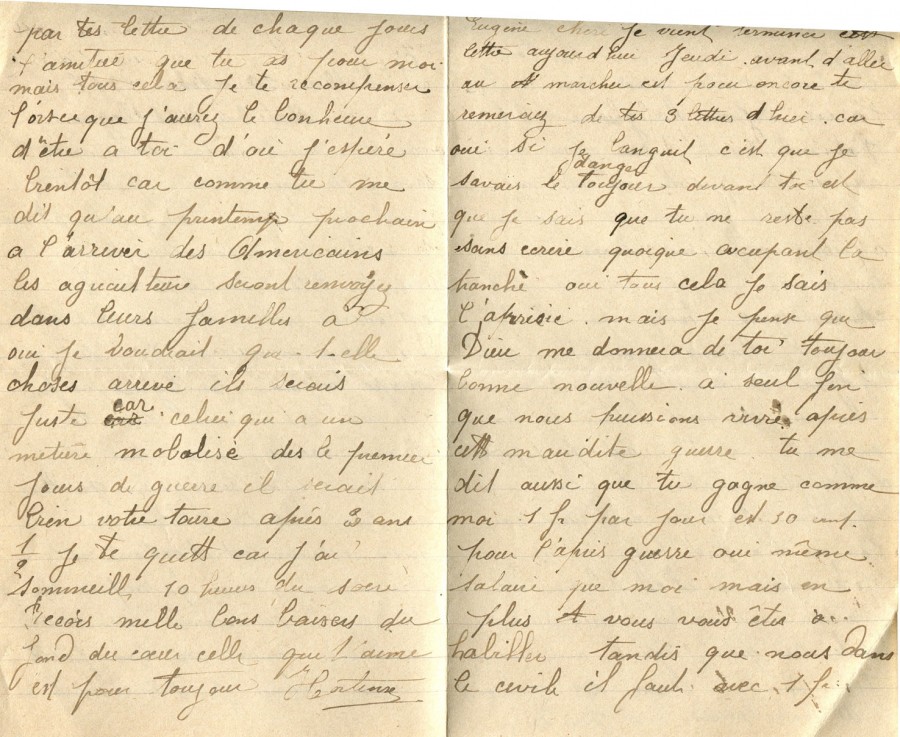 par tes lettre de chaque jours
l'amitier que tu as pour moi
mais tous cela je te recompenser
lorsque j'aurez le bonheur
d'être a toi d'où j'espéré
bientôt car comme tu me
dit qu'au printemp prochain
a l'arriver des Americains
les agriculture seront renvoyez
dans leurs familles a
oui je voudrait que t-elle
choses arrivé ils serais
juste car celui qui a un
metière mobalisé des le premier
jours de guerre il serait
bien votre toure après 3 ans
1/2 je te quitt car j'ai
sommeill 10 heures du soère
Recois mille bons baisers du
fond du cœur celle qui t'aime
est pour toujour Hortense
Eugène chere je vient terminer cett
lettre aujourd'hui Jeudi avant d'aller
au marcher est pour encore te
remerciez de tes 3 lettres d'hier car
oui si je languit c'est que je
danger
savais le toujour devant toi est
que je sais que tu ne reste pas
sans ecrire quoique occupant la
tranchè oui tous cela je sais
l'aprisié mais je pense que
Dieu me donnera de toi toujour
bonne nouvelle a seul fin
que nous puissions vivre après
cett maudite guerre tu me
dit aussi que tu gagne comme
moi 1 fr par jour est 50 cent.
pour l'après guerre oui même
salaire que moi mais en
plus vous vous êtes a
habiller tandis que nous dans
le civil il faut avec 1 fr